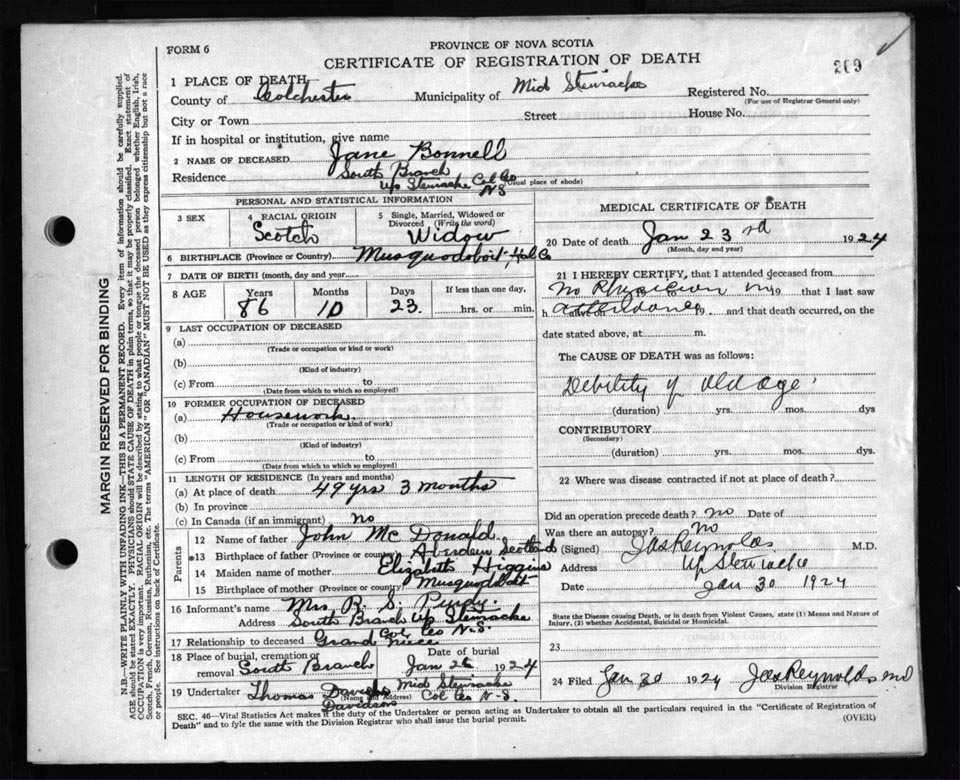 FORM 6
PROVINCE OF NOVA SCOTIA
CERTIFICATE OF REGISTRATION OF DEATH
209
1 PLACE OF DEATH—
County of Colchester Municipality of Mid Stewiacke Registered No.
(For use of Registrar General only)
City or Town Street House No.
If in hospital or institution, give name
2 NAME OF DECEASED Jane Bonnell
Residence South Branch
Up Stewiacke Col Co
N S (Usual place of abode)
PERSONAL AND STATISTICAL INFORMATION
3 SEX
4 RACIAL ORIGIN
Scotch
5 Single, Married, Widowed or
Divorced (Write the word)
Widow
6 BIRTHPLACE (Province or Country) Musquodoboit, Hal Co
7 DATE OF BIRTH (month, day and year)
8 AGE Years Months Days If less than one day,
86 10 23. hrs. or min.
9 LAST OCCUPATION OF DECEASED
(a)
(Trade or occupation or kind or work)
(b)
(Kind of industry)
(c) From to
(Date from which to which so employed)
10 FORMER OCCUPATION OF DECEASED
(a) Housework.
(Trade or occupation or kind of work)
(b)
(Kind of industry)
(c) From to
(Date from which to which so employed)
11 LENGTH OF RESIDENCE (In years and months)
(a) At place of death 49 yrs 3 months
(b) In province
(c) In Canada (if an immigrant) no
Parents
12 Name of father John Mc Donald
13 Birthplace of father (Province or country) Aberdeen Scotland
14 Maiden name of mother Elizabeth Higgins
15 Birthplace of mother (Province or country) Musquodoboit
16 Informant's name Mrs R. S. Purdy.
Address South Branch Up Stewiacke
Col Co N. S.
17 Relationship to deceased Grand Niece
18 Place of burial, cremation or
removal South Branch
Date of burial
Jan 26 1924
19 Undertaker Thomas Davidson Mid Stewiacke
(Name and Address)
Davidson Col Co N. S
MEDICAL CERTIFICATE OF DEATH
20 Date of death Jan 23rd 1924
(Month, day and year)
21 I HEREBY CERTIFY, that I attended deceased from
No Physician in 19 that I last saw
h attendance 19 . and that death occurred, on the
date stated above, at m.
The CAUSE OF DEATH was as follows:
Debility of old age
(duration) yrs. mos. dys
CONTRIBUTORY
(Secondary)
(duration) yrs. mos. dys.
22 Where was disease contracted if not at place of death?
Did an operation precede death? no Date of
Was there an autopsy? No
(Signed) Jas Reynolds M.D.
Address Up Stewiacke
Date Jan 30 1924
State the Disease causing Death, or in death from Violent Causes, state (1) Means and Nature of
Injury, (2) whether Accidental, Suicidal or Homicidal.
23
24 Filed Jan 30 1924 Jas Reynolds md
Division Registrar
SEC. 46—Vital Statistics Act makes it the duty of the Undertaker or person acting as Undertaker to obtain all the particulars required in the "Certificate of Registration of
Death" and to fyle the same with the Division Registrar who shall issue the burial permit.
(OVER)
MARGIN RESERVED FOR BINDING
N.B.—WRITE PLAINLY WITH UNFADING INK—THIS IS A PERMANENT RECORD. Every item of information should be carefully supplied.
AGE should be stated EXACTLY. PHYSICIANS should STATE CAUSE OF DEATH in plain terms, so that it may be properly classified. Exact statement of
OCCUPATION is very important. RACIAL ORIGIN will be described by stating to what people or tongue the deceased person belonged whether English, Irish,
Scotch, French, German, Russian, Ruthenian, etc. The terms "AMERICAN" OR "CANADIAN" MUST NOT BE USED as they express citizenship but not a race
or people. See instructions on back of Certificate.